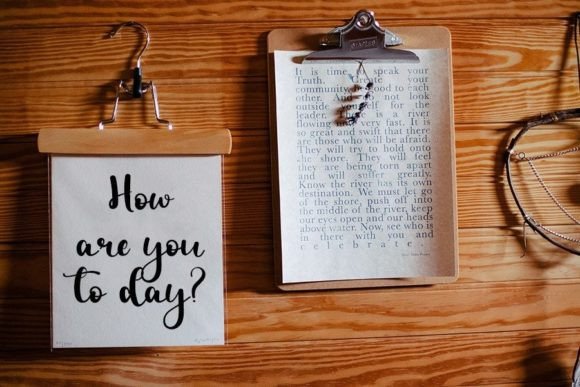 How
are you
to day?
It is time speak your
Truth. Create your
community. good to each
other. And not look
outside yourself for the
leader. is a river
flowing very fast. It is
so great and swift that there
are those who will be afraid.
They will try to hold onto
the shore. They will feel
they are being torn apart
and will suffer greatly.
Know the river has its own
destination. We must let go
of the shore, push off into
the middle of the river, keep
our eyes open and our heads
above water. Now, see who is
in there with you and
celebrate.